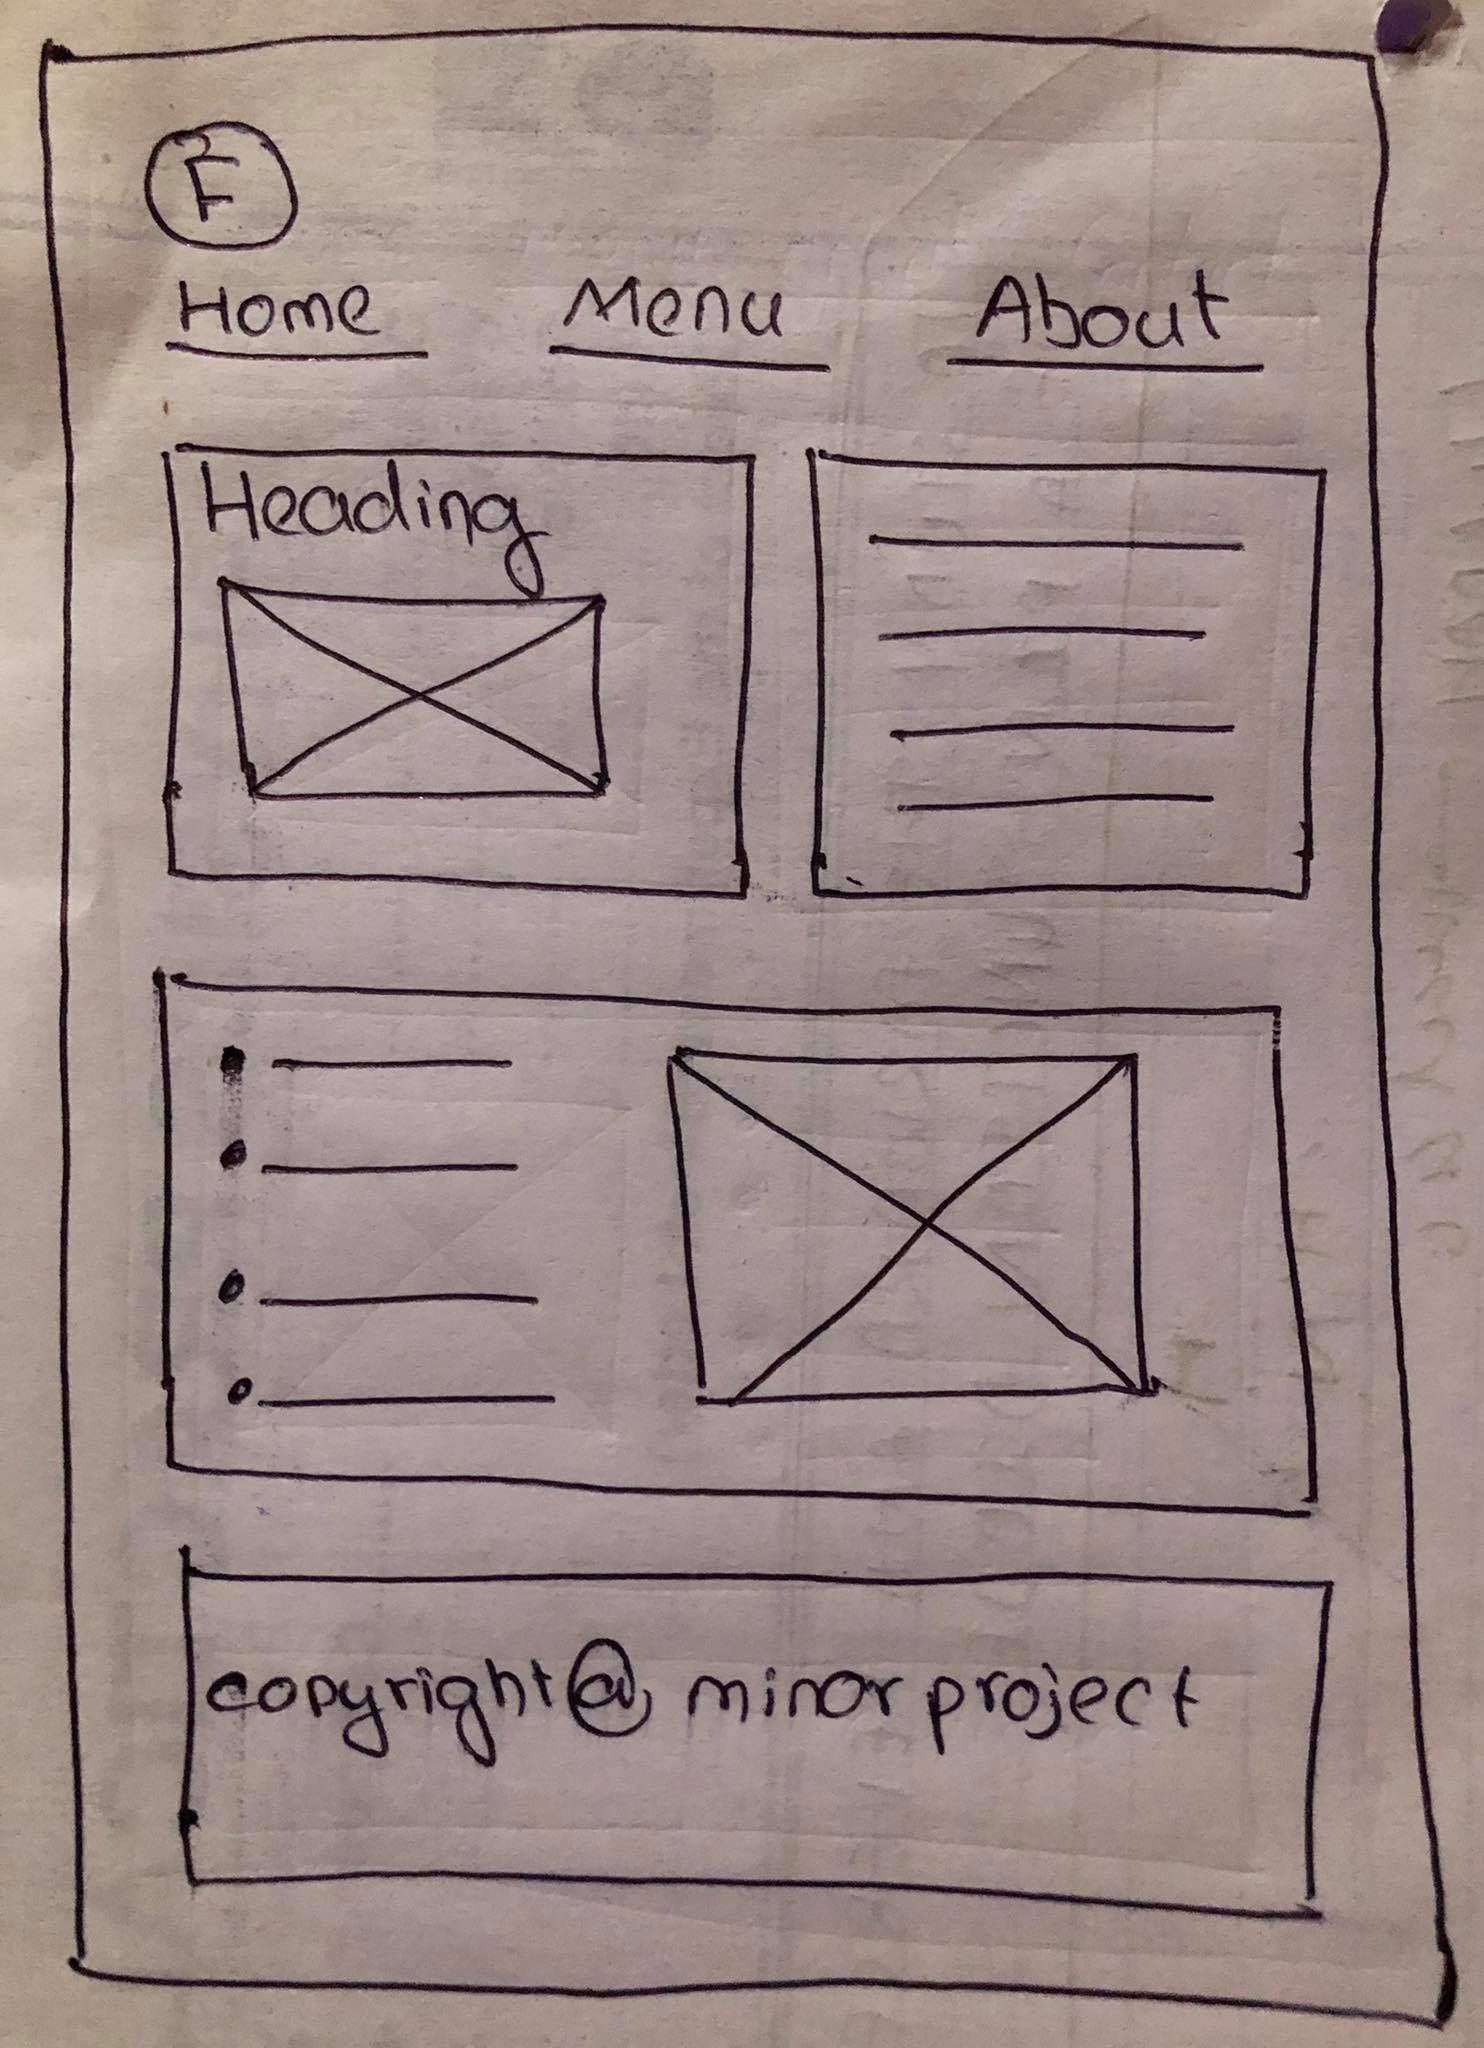 F
Home Menu About
Heading
copyright@ minor project